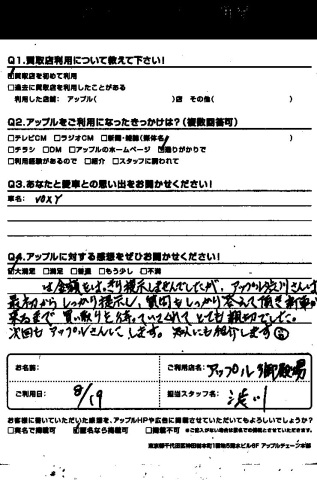 Q1.買取店利用について教えて下さい!
☑買取店を初めて利用
□過去に買取店を利用したことがある
利用した店舗: アップル( )店 その他( )
Q2.アップルをご利用になったきっかけは?(複数回答可)
□テレビCM □ラジオCM □新聞・雑誌(媒体名 )
□チラシ □DM □アップルのホームページ ☑通りがかりで
□利用経験があるので □紹介 □スタッフに誘われて
Q3.あなたと愛車との思い出をお聞かせください!
車名: VOXY
Q4.アップルに対する感想をぜひお聞かせください!
☑大満足 □満足 □普通 □もう少し □不満
は金額をはっきり提示しませんでしたが、アップル渋川さんは
最初からしっかり提示し、質問もしっかり答えて頂き新車が
来るまで買い取りを待っていてくれてとても親切でした。
次回もアップルさんにします。友人にも紹介します
お名前:
ご利用店名: アップル御殿場
ご利用日: 8/19
担当スタッフ名: 渋川
お客様に書いていただいた感想を、アップルHPや広告に掲載させていただいてもよろしいでしょうか?
□実名で掲載可 ☑匿名なら掲載可 □掲載不可 ※ご記入がない場合は匿名での掲載とさせていただきます。